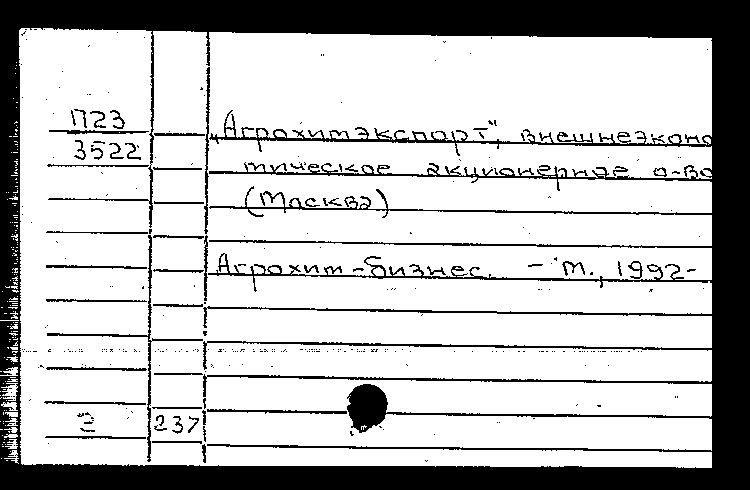 П23
3522
„Агрохимэкспорт", внешнеэконо
мическое акционерное о-во
(Москва)
Агрохим-бизнес. - М., 1992-
2 237